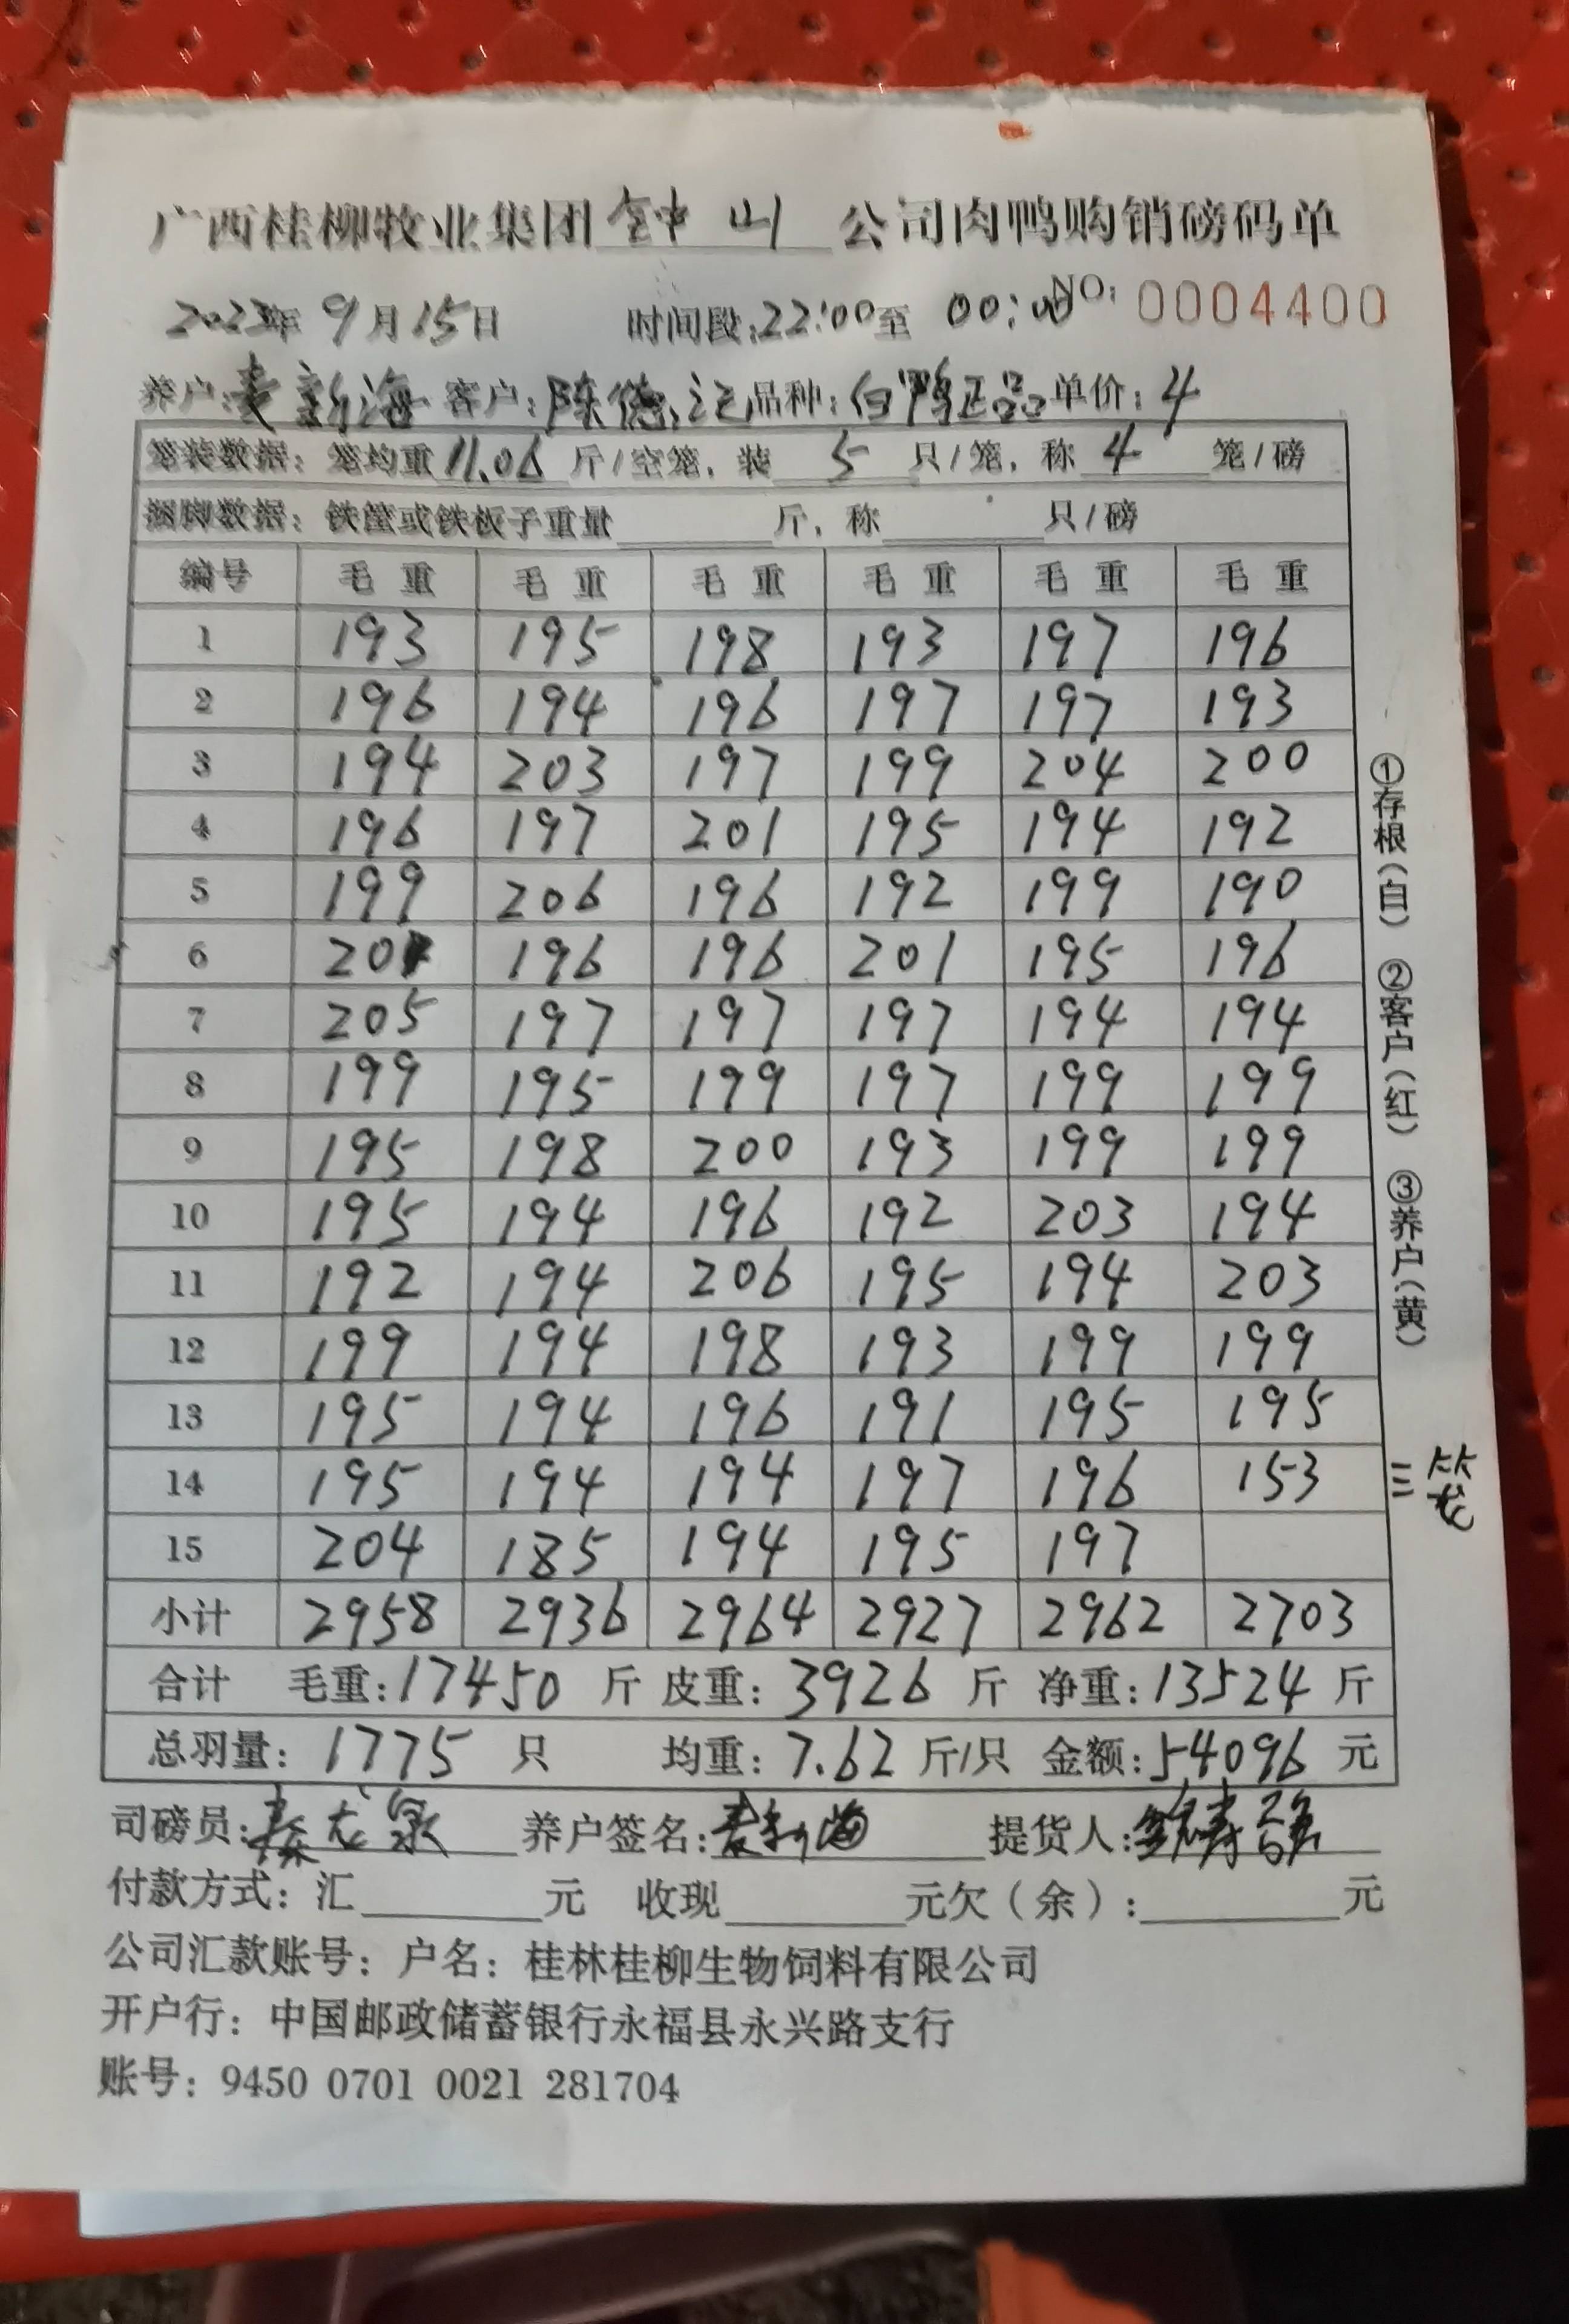 广西桂柳牧业集团 钟山 公司肉鸭购销磅码单
2023年 9月15日 时间段:22:00至 00:00 NO: 0004400
养户:麦新海 客户:陈德 品种:白鸭正品 单价:4
笼装数据: 笼均重 11.06 斤/空笼, 装 5 只/笼, 称 4 笼/磅
捆脚数据: 铁筐或铁板子重量 斤, 称 只/磅
编号 毛重 毛重 毛重 毛重 毛重 毛重
1 193 195 198 193 197 196
2 196 194 196 197 197 193
3 194 203 197 199 204 200
4 196 197 201 195 194 192
5 199 206 196 192 199 190
6 201 196 196 201 195 196
7 205 197 197 197 194 194
8 199 195 199 197 199 199
9 195 198 200 193 199 199
10 195 194 196 192 203 194
11 192 194 206 195 194 203
12 199 194 198 193 199 199
13 195 194 196 191 195 195
14 195 194 194 197 196 153 三笼
15 204 185 194 195 197
小计 2958 2936 2964 2927 2962 2703
合计 毛重:17450 斤 皮重: 3926 斤 净重:13524 斤
总羽量: 1775 只 均重: 7.62 斤/只 金额:54096 元
司磅员: 养户签名:麦新海 提货人:
付款方式: 汇 元 收现 元欠(余): 元
公司汇款账号: 户名: 桂林桂柳生物饲料有限公司
开户行: 中国邮政储蓄银行永福县永兴路支行
账号: 9450 0701 0021 281704
①存根(白) ②客户(红) ③养户(黄)